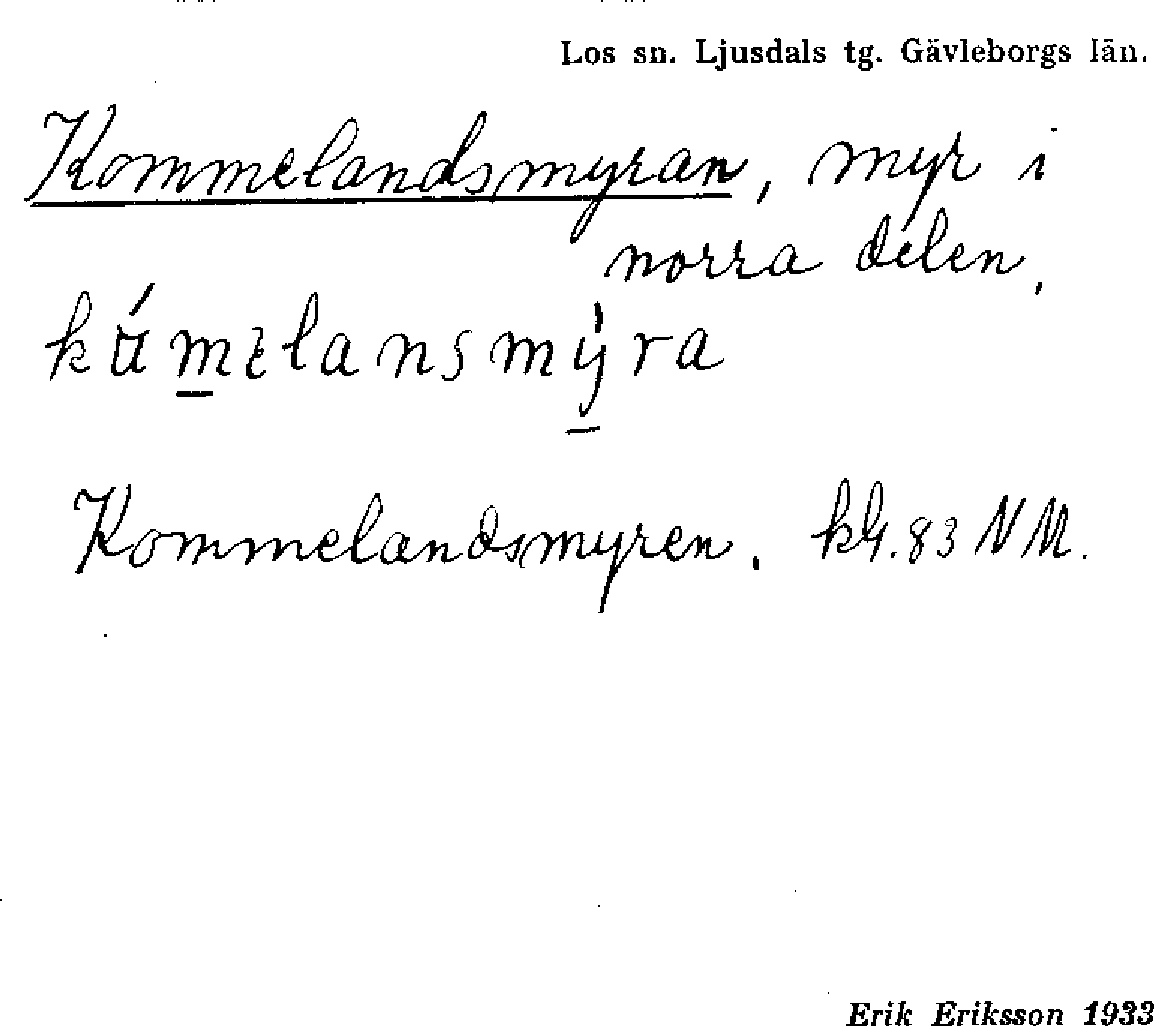 Los sn. Ljusdals tg. Gävleborgs län.
Kommelandsmyran, myr i
norra delen.
Kommelandsmyren. kbl. 83 NM.
Erik Eriksson 1933